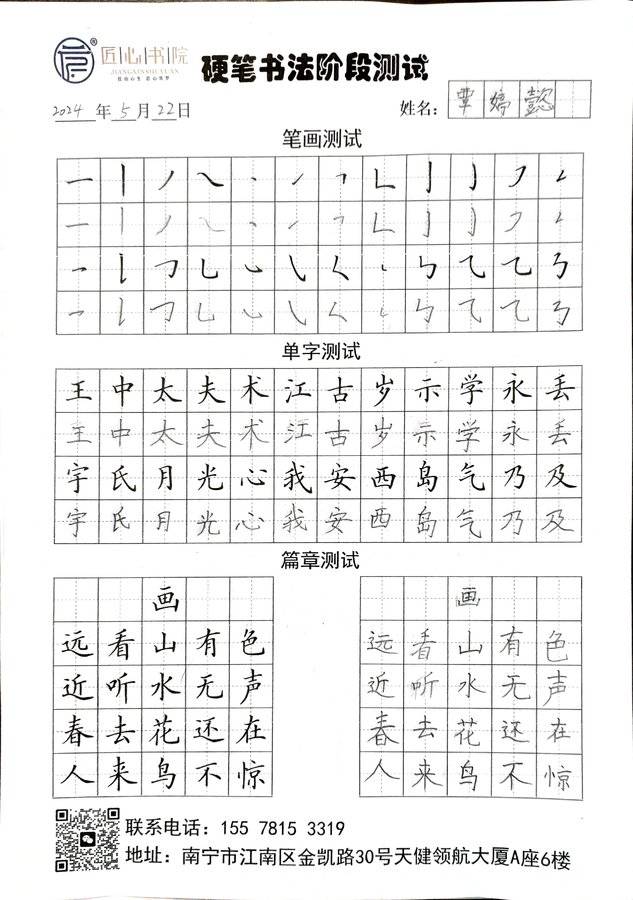 匠心书院
JIANGXINSHUYUAN
硬笔书法阶段测试
2024年5月22日 姓名：覃嫡懿
笔画测试
单字测试
王中太夫术江古岁示学永丢
王中太夫术江古岁示学永丢
宇氏月光心我安西岛气乃及
宇氏月光心我安西岛气乃及
篇章测试
画 画
远看山有色 远看山有色
近听水无声 近听水无声
春去花还在 春去花还在
人来鸟不惊 人来鸟不惊
联系电话：155 7815 3319
地址：南宁市江南区金凯路30号天健领航大厦A座6楼